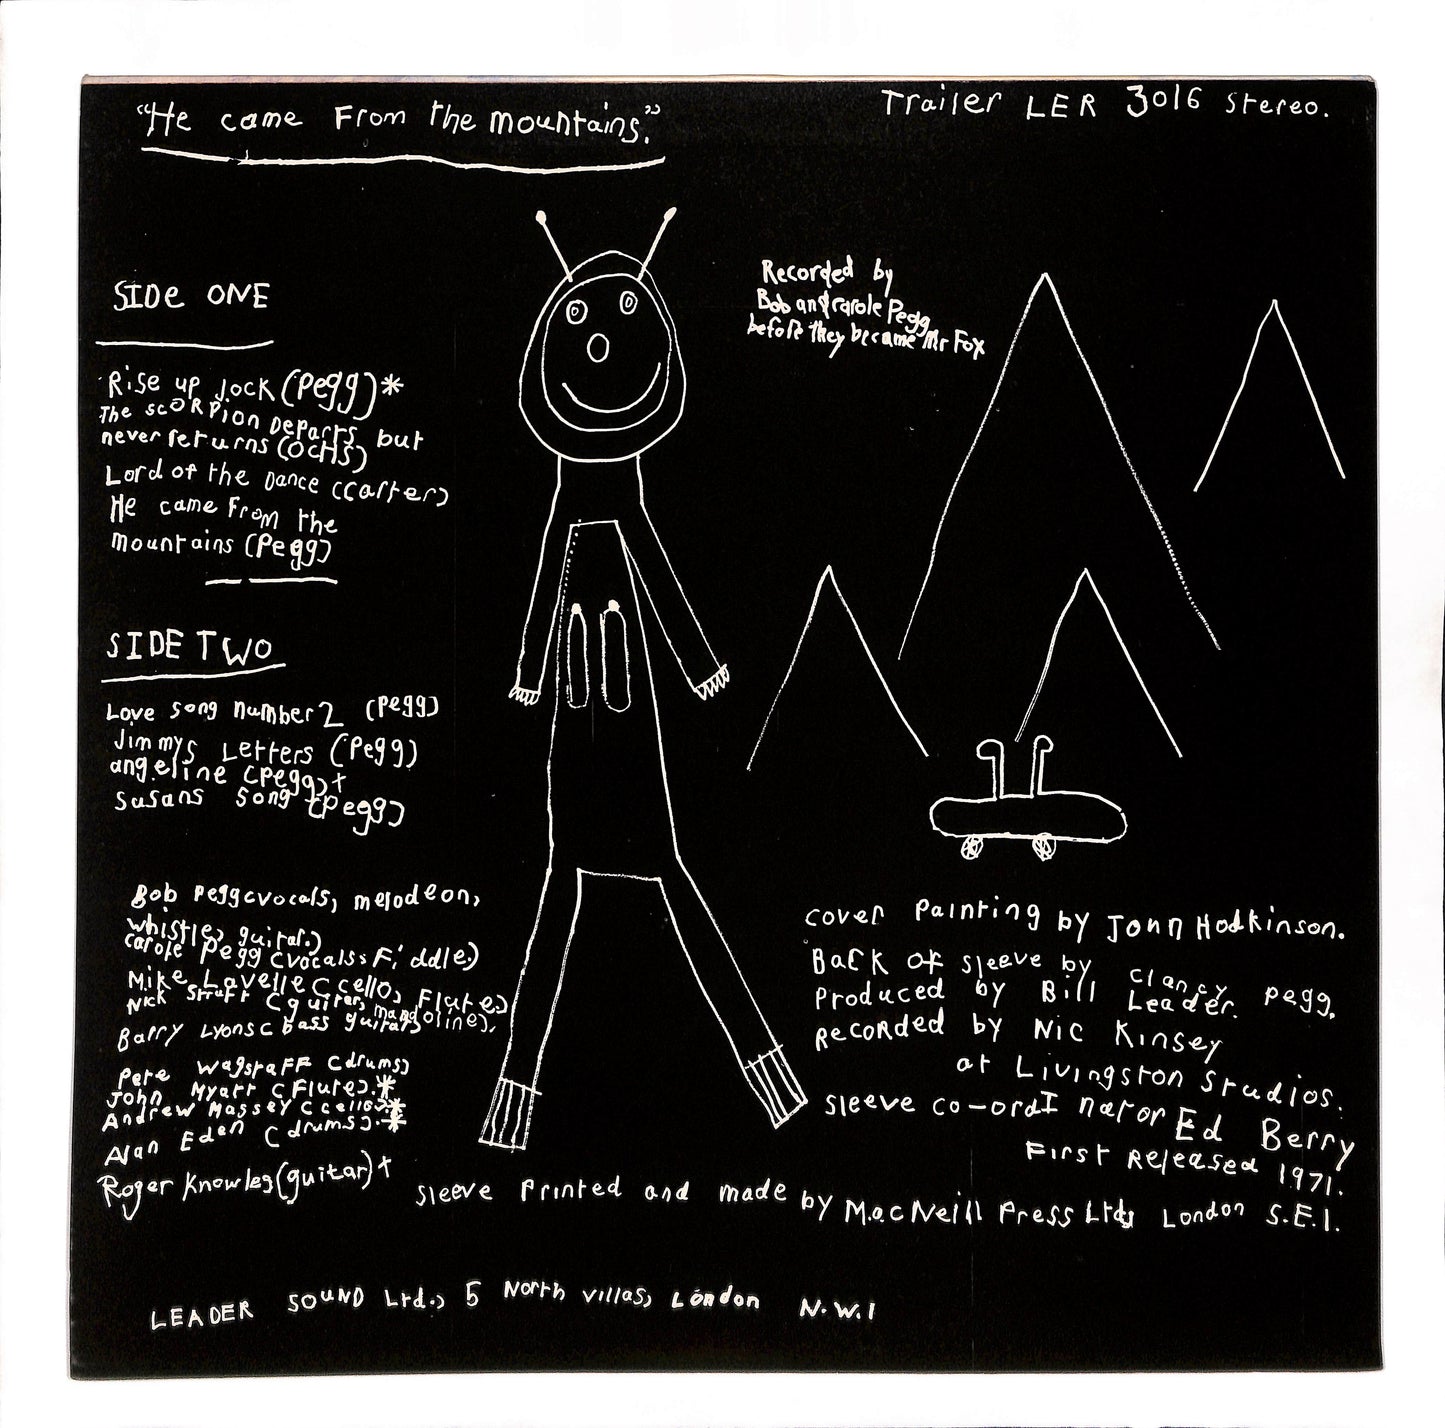 "He came From the mountains."
Trailer LER 3016 Stereo.
Recorded by
Bob and carole Pegg
before they became Mr Fox
SIDe ONE
Rise up Jock (Pegg)*
The scORPion DEParts but
never returns (OCHS)
Lord of the Dance (Carter)
He came From the
mountains (Pegg)
SIDE TWO
Love song number 2 (Pegg)
Jimmys Letters (Pegg)
angeline (Pegg)+
Susans Song (Pegg)
Bob Pegg (vocals, melodeon,
whistle, guitar.)
carole Pegg (vocals, Fiddle)
Mike Lavelle (cello, Flute)
Nick Strutt (guitar, mandoline),
Barry Lyons (bass guitar)
Pete Wagstaff (drums)
John Myatt (Flute).*
Andrew Massey (cello).*
Alan Eden (drums).*
Roger Knowles (guitar)+
cover Painting by John Hodkinson.
Back of sleeve by Clancy Pegg.
Produced by Bill Leader.
Recorded by Nic Kinsey
at Livingston Studios.
Sleeve co-ordInator Ed Berry
First Released 1971.
Sleeve Printed and made by MacNeill Press Ltd, London S.E.1.
LEADER SOUND Ltd., 5 North villas, London N.W.1